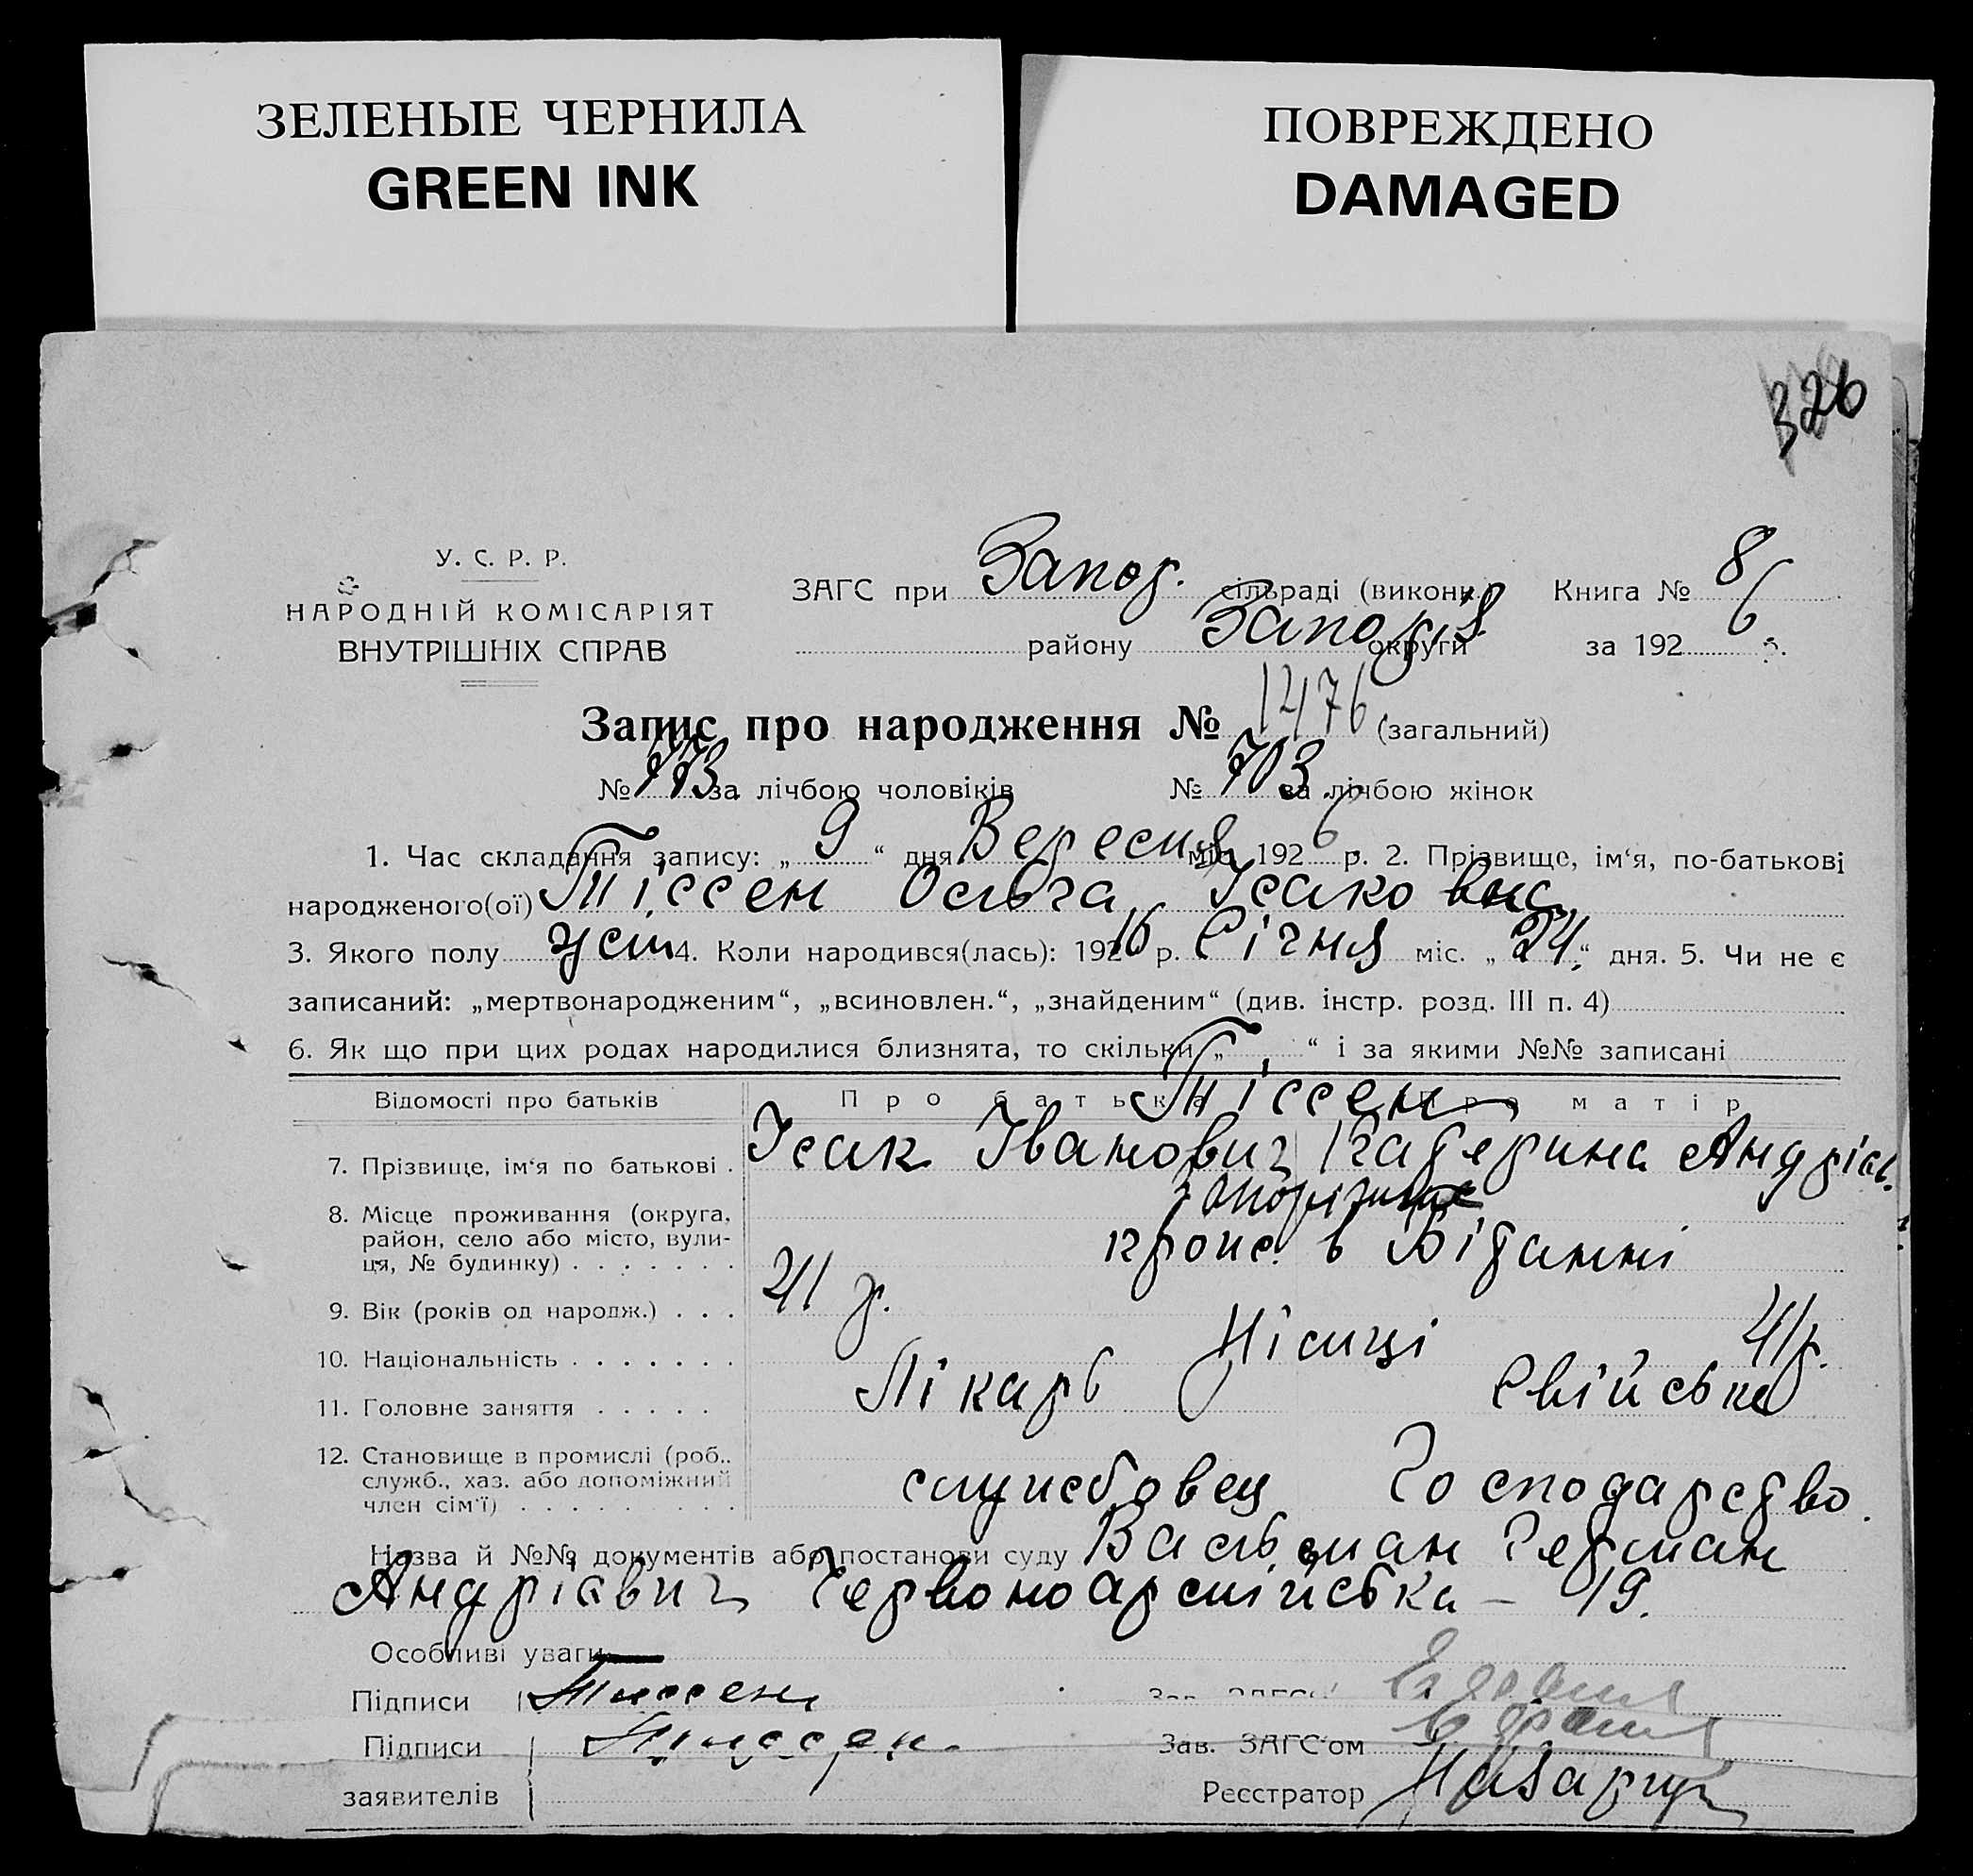 ЗЕЛЕНЫЕ ЧЕРНИЛА
GREEN INK
ПОВРЕЖДЕНО
DAMAGED
326
У. С. Р. Р.
НАРОДНІЙ КОМІСАРІЯТ
ВНУТРІШНІХ СПРАВ
ЗАГС при Запор. сільраді (викони.) Книга № 8
району Запоріз округи за 1926 р.
Запис про народження № 1476 (загальний)
№ 773 за лічбою чоловіків № 703 за лічбою жінок
1. Час складання запису: „ 9 “ дня Вересня міс. 1926 р. 2. Прізвище, ім‘я, по-батькові
народженого(ої) Тіссен Ольга Ісаковна
3. Якого полу жін 4. Коли народився(лась): 1916 р. Січня міс. „ 24 “ дня. 5. Чи не є
записаний: „мертвонародженим“, „всиновлен.“, „знайденим“ (див. інстр. розд. III п. 4)
6. Як що при цих родах народилися близнята, то скільки „ “ і за якими №№ записані
Відомості про батьків Про батька Про матір
Тіссен
7. Прізвище, ім‘я по батькові . Ісак Іванович Катерина Андріїв.
8. Місце проживання (округа,
район, село або місто, вули-
ця, № будинку) . . . . . . . в
9. Вік (років од народж.) . . . 41 р. 41 р.
10. Національність . . . . . . . Німці
11. Головне заняття . . . . . Лікарь Свійське
12. Становище в промислі (роб..
служб., хаз. або допоміжний
член сім‘ї) . . . . . . . . . службовец Господарство
Назва й №№ документів або постанови суду Вальман Герман
Андріівич Червоноармійська – 19.
Особливі уваги
Підписи Тиссен
Підписи Тиссен Зав. ЗАГС‘ом
заявителів Реєстратор